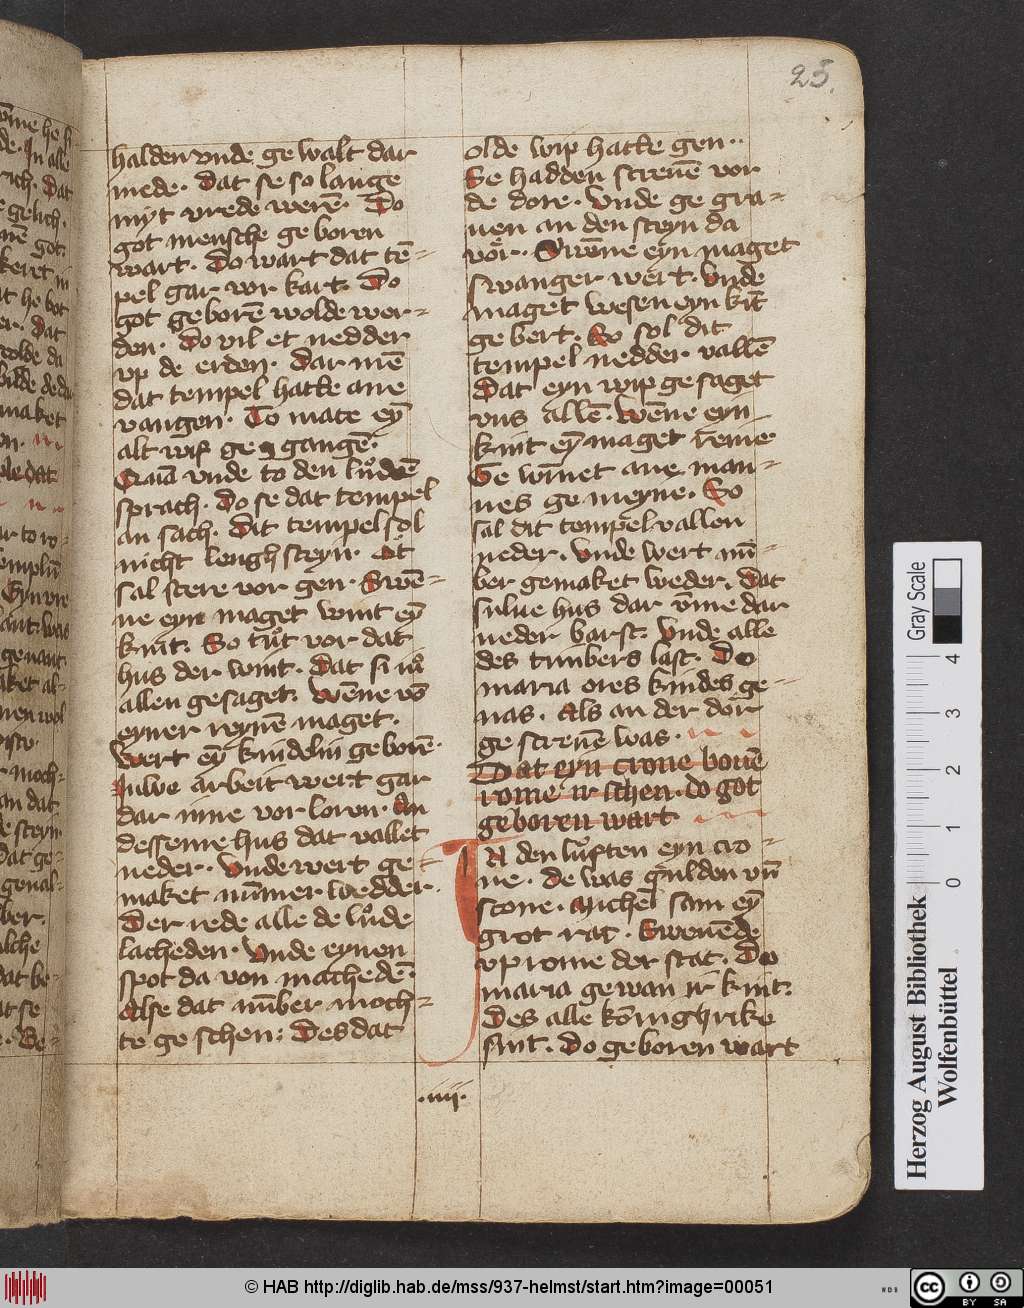 23.
halden vnde ge walt dar
mede. Dat se so lange
myt vrede werē. Do
got mensche ge boren
wart. Do wart dat tē-
pel gar vor kart. Do
got geborē wolde wer-
den. Do vil et nedder
vp de erden. Dar mē
dat tempel hatte ane
vangen. To mate eȳ
alt wif ge gangē.
vnde to den luͦden
sprach. Do se dat tempel
an sach. Dit tempel sol
nicht lengh steyn. Et
sal stere vor gen. Swē-
ne eyn maget wint eȳ
kint. So tuͦt vor dat
hus der wint. Dat si iu
allen gesaget. Wēne vō
eyner reynē maget.
Wert eȳ kindelin geborē.
Iuwe arbeit wert gar
dar inne vor loren. An
desseme hus dat vallet
neder. Vnde wert ge-
maket nūmer wedder.
Der rede alle de luͦde
lacheden. Vnde eynen
spot da von machedē.
Alse dat nūber moch-
te ge schen. Des dat
olde wip hatte gen..
Se hadden screuē vor
de dore. Vnde ge gra-
uen an den steyn da
vor. Swēne eyn maget
swanger wert. Vnde
maget wesen eyn kīt
ge bert. So sol dit
tempel nedder vallē
Dat eyn wip ge saget
vns allē. Wēne eyn
kint eȳ maget reine
Ge wīnet ane man-
nes ge meyne. So
sal dit tempel vallen
neder. Vnde wert nū-
ber gemaket weder. Dat
sulue hus dar vmme dar
neder barst. Vnde alle
des timbers last. Do
maria ores kindes ge-
nas. Als an der dor
ge screuē was.
Dat eyn crone bouē
rome ir schen. do got
geboren wart
IN den luͦften eyn cro-
ne. de was gulden vn̄
scone. Michel sam eȳ
grot rat. Sweuēde
vp rome der stat. Do
maria gewan ir kint.
Des alle kōninghrike
sint. Do geboren wart
.iiii.
Herzog August Bibliothek
Wolfenbüttel
Gray Scale
0 1 2 3 4
© HAB http://diglib.hab.de/mss/937-helmst/start.htm?image=00051
cc BY SA